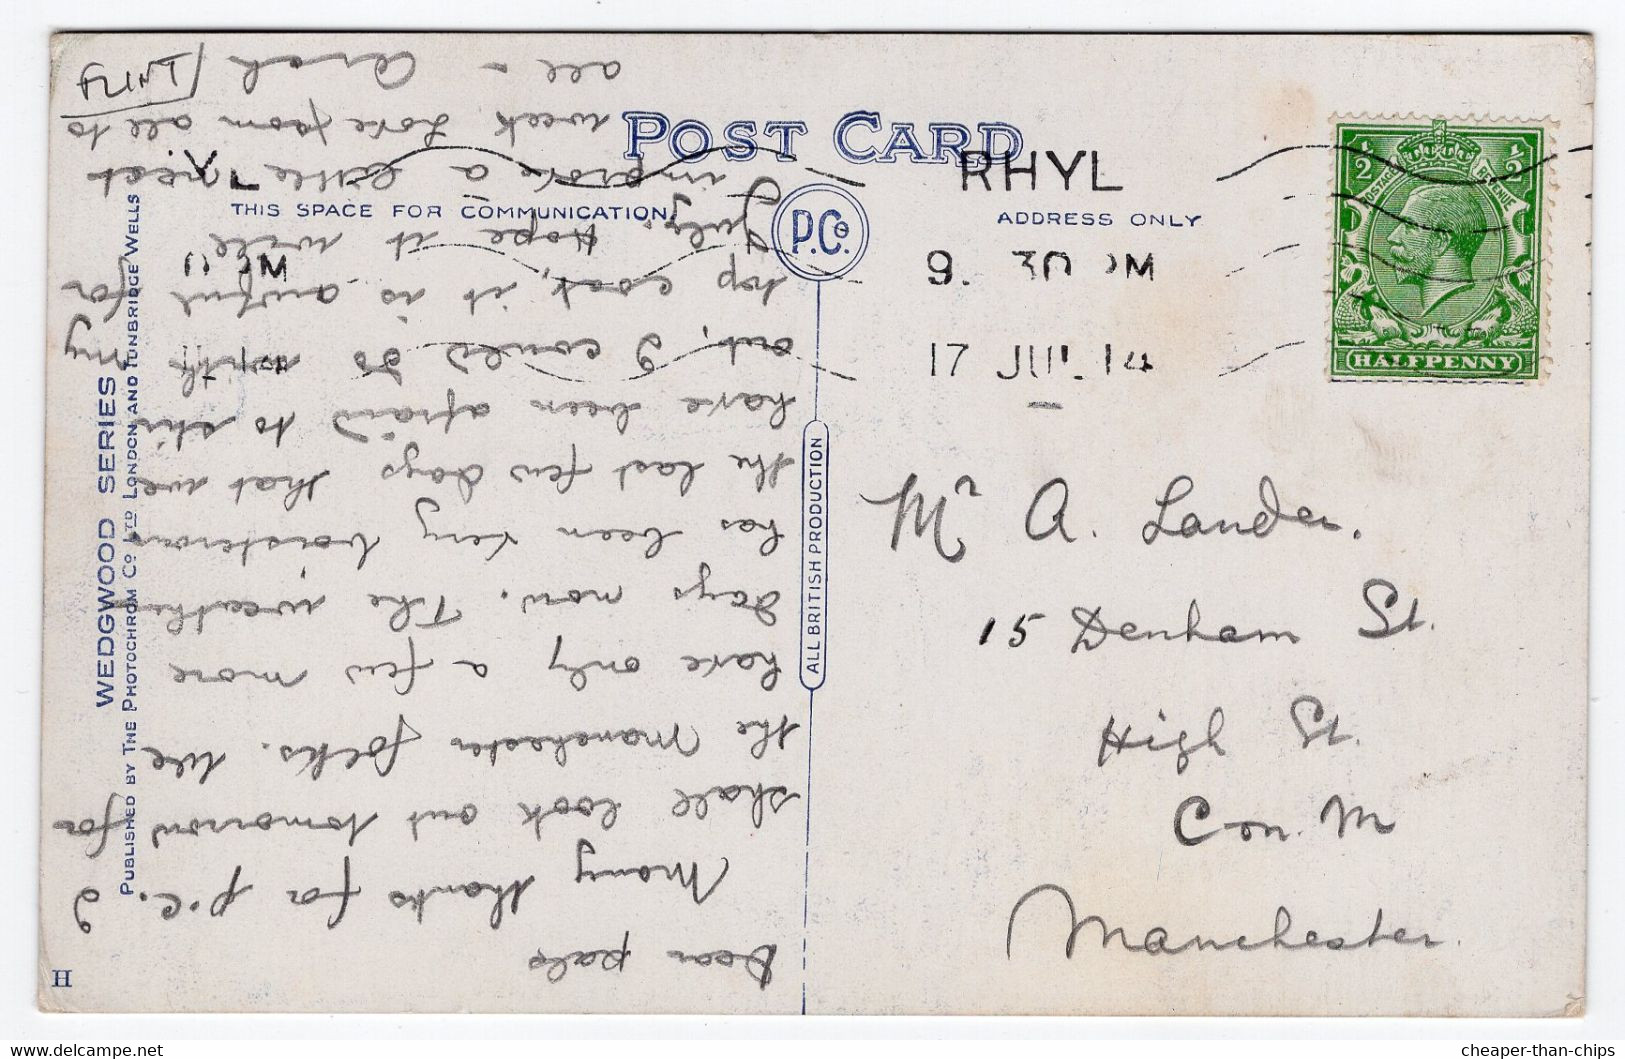 POST CARD
THIS SPACE FOR COMMUNICATION
ADDRESS ONLY
P.Co.
RHYL
9. 30 PM
17 JUL 14
POSTAGE REVENUE
1/2 1/2
HALFPENNY
WEDGWOOD SERIES
PUBLISHED BY THE PHOTOCHROM CO LTD LONDON AND TUNBRIDGE WELLS
ALL BRITISH PRODUCTION
H
Mr A. Lander.
15 Denham St.
High St.
Con. M
Manchester.
Dear pals
Many thanks for p.c. I
shall look out tomorrow for
the Manchester folks. We
have only a few more
days now. The weather
has been very boisterous
the last few days that we
have been afraid to stir
out, I could do with my
top coat, it is awful for
July. Hope it will
improve a little next
week Love from all to
all - Arch